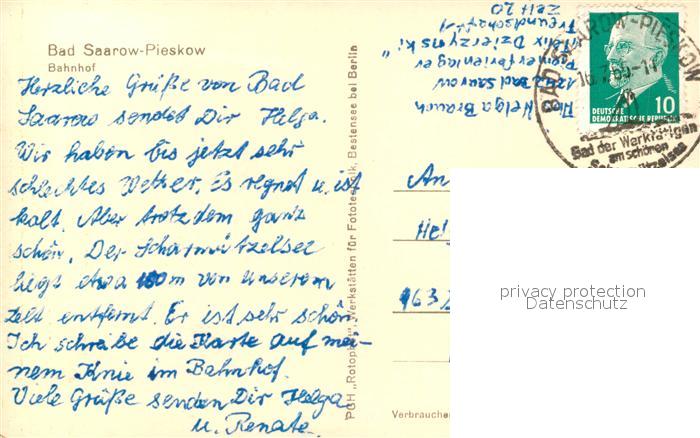 Bad Saarow-Pieskow
Bahnhof
Herzliche Grüße von Bad
Saarow sendet Dir Helga.
Wir haben bis jetzt sehr
schlechtes Wetter. Es regnet u. ist
kalt. Aber trotzdem ganz
schön. Der Scharmützelsee
liegt etwa 100m von unserem
Zelt entfernt. Er ist sehr schön.
Ich schreibe die Karte auf mei-
nem Knie im Bahnhof.
Viele Grüße senden Dir Helga
u. Renate.
PGH „Rotophot", Werkstätten für Fototechnik, Bestensee bei Berlin
Helga Brauch
1242 Bad Saarow
Pionierferienlager
"Felix Dzierzynski"
Freundschaft 1
Zelt 20
BAD SAAROW-PIESKOW
Bad der Werktätigen
am schönen
DEUTSCHE
DEMOKRATISCHE REPUBLIK
10
An
Hel
163
Verbrauche
privacy protection
Datenschutz